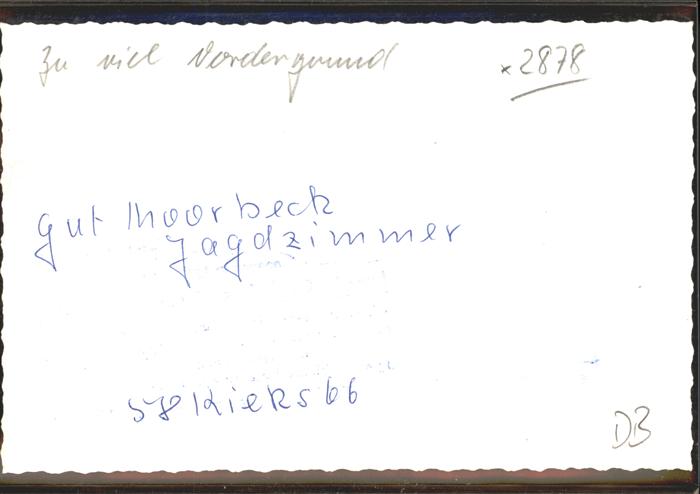 Zu viel Vordergrund
x2878
gut Moorbeck
Jagdzimmer
Kieks 66
DB